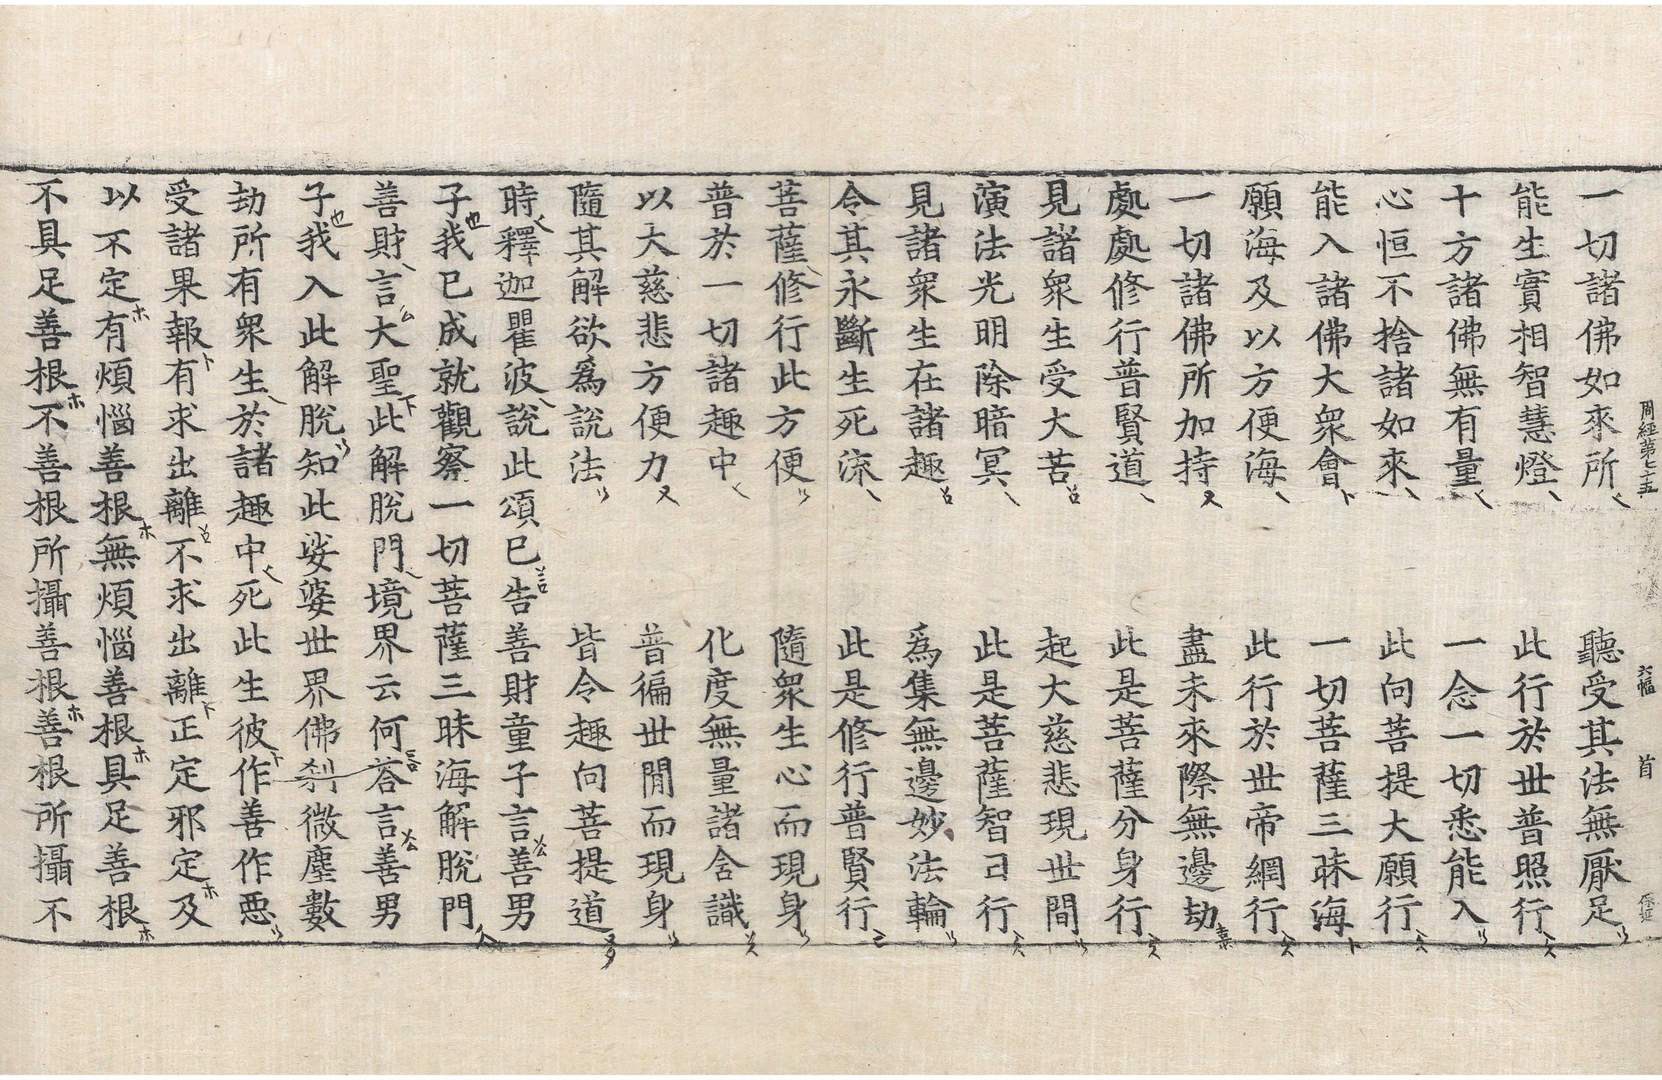 周經第七十五 六幅 首
一切諸佛如來所 聽受其法無厭足
能生實相智慧燈 此行於世普照行
十方諸佛無有量 一念一切悉能入
心恒不捨諸如來 此向菩提大願行
能入諸佛大衆會 一切菩薩三昧海
願海及以方便海 此行於世帝網行
一切諸佛所加持 盡未來際無邊劫
處處修行普賢道 此是菩薩分身行
見諸衆生受大苦 起大慈悲現世間
演法光明除暗冥 此是菩薩智日行
見諸衆生在諸趣 爲集無邊妙法輪
令其永斷生死流 此是修行普賢行
菩薩修行此方便 隨衆生心而現身
普於一切諸趣中 化度無量諸含識
以大慈悲方便力 普徧世間而現身
隨其解欲爲說法 皆令趣向菩提道
時釋迦瞿波說此頌已告善財童子言善男
子我已成就觀察一切菩薩三昧海解脫門
善財言大聖此解脫門境界云何荅言善男
子我入此解脫知此娑婆世界佛刹微塵數
劫所有衆生於諸趣中死此生彼作善作惡
受諸果報有求出離不求出離正定邪定及
以不定有煩惱善根無煩惱善根具足善根
不具足善根不善根所攝善根善根所攝不